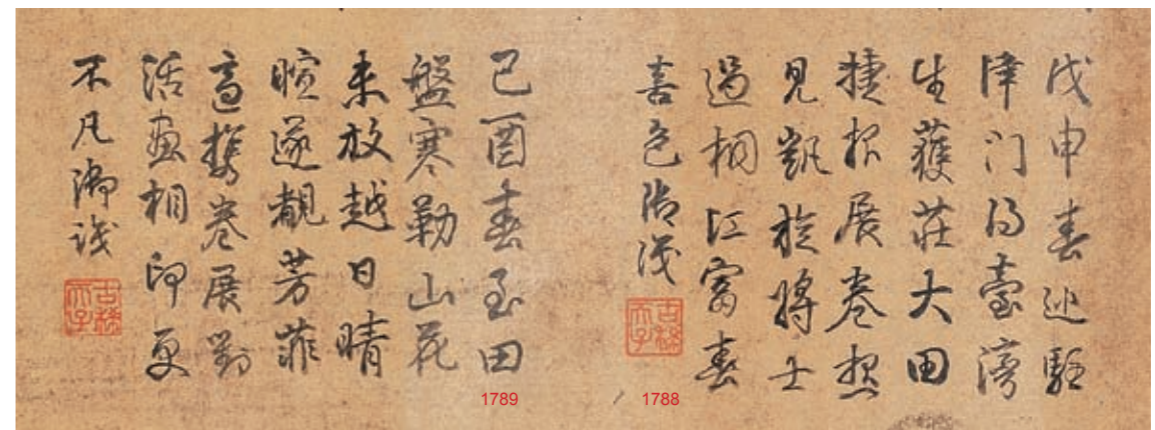 戊申春巡駐
津门得臺湾
生獲莊大田
捷报展卷想
見凱旋將士
過桐江富春
喜色御識
古稀天子
1788
己酉春至田
盤寒勒山花
未放越日晴
暄遂覩芳菲
適携卷展對
活畫相印更
不凡御識
古稀天子
1789